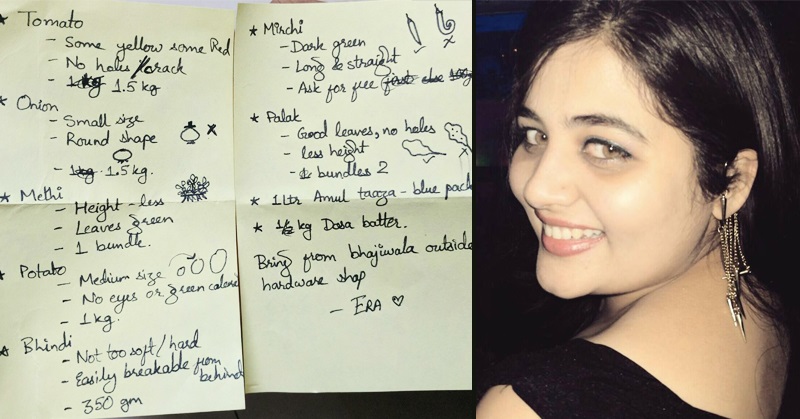 * Tomato
- Some yellow some Red
- No holes / crack
- 1.5 kg
* Onion
- Small size
- Round shape
- 1.5 kg.
* Methi
- Height - less
- Leaves green
- 1 bundle.
* Potato
- Medium size
- No eyes or green
- 1 kg.
* Bhindi
- Not too soft / hard
- Easily breakable from behind
- 350 gm
* Mirchi
- Dark green
- Long & straight
- Ask for free
* Palak
- Good leaves, no holes
- less height
- bundles 2
* 1 ltr Amul taaza - blue pack
* kg Dosa batter.
Bring from bhajiwala outside
hardware shop
- ERA ♡